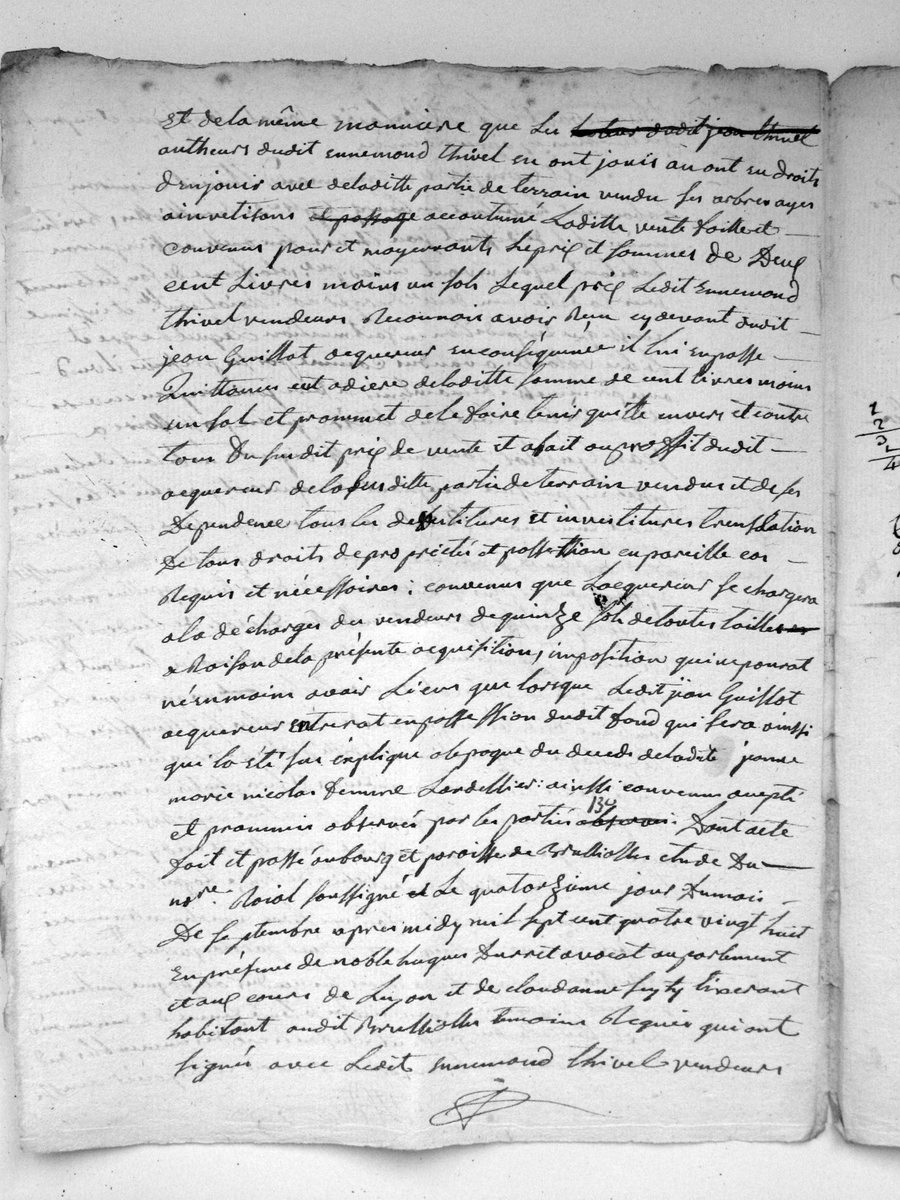 Et de la même manniere que les autheurs dudit jean thivel
autheurs dudit ennemond thivel en ont jouis àu ont eu droits
d'enjouir avec deladitte partie de terrain vendu ses arbres ayes
ainvetisons et passage accoutumé Laditte vente faitte et
convenus pour et moyennants le prix et sommes de Deux
cent Livres moins un sols Lequel prix Ledit Ennemond
thivel vendeurs Reconnois avoir Reçu cydevant dudit
jean Guillot acquereur en conséquence il lui en passe
Quittances et adiere deladitte somme de cent livres moins
un sol et prommet de le faire tenir quitte envers et contre
tous Du susdit prix de vente et a fait au proffit dudit
acquereur de la susditte partie de terrain vendus et de ses
Dependence tous les devestitures et investitures translation
De tous droits de propriétés et possession en pareille cas
Requis et nécessoires : convenus que Lacquereur se chargera
a la décharges du vendeurs de quinze sols de toutes tailles
a Raison de la présente acquisition, imposition qui ne pourat
néanmoins avoir Lieus que lorsque Ledit jean Guillot
acquereur entrerat en possession dudit fond qui sera ainssi
qui la été sus expliqué a lepoque du deceds deladite jeanne
marie nicolas femme Lardellier : ainssi convenus accepté
et prommis observés par les parties 134 observer. Dont acte
fait et passé au bourg et paroisse de Brussiolles etude Du
nore. Roial soussigné Le quatorzieme jour Du mois
De septembre apres midy mil sept cent quatre vingt huit
En présence de noble hugues Durret avocat au parlement
et aux cours de Lyon et de claudanne tisserant
habitant audit Brussiolles temoins Requis qui ont
signés avec Ledit ennemond thivel vendeurs